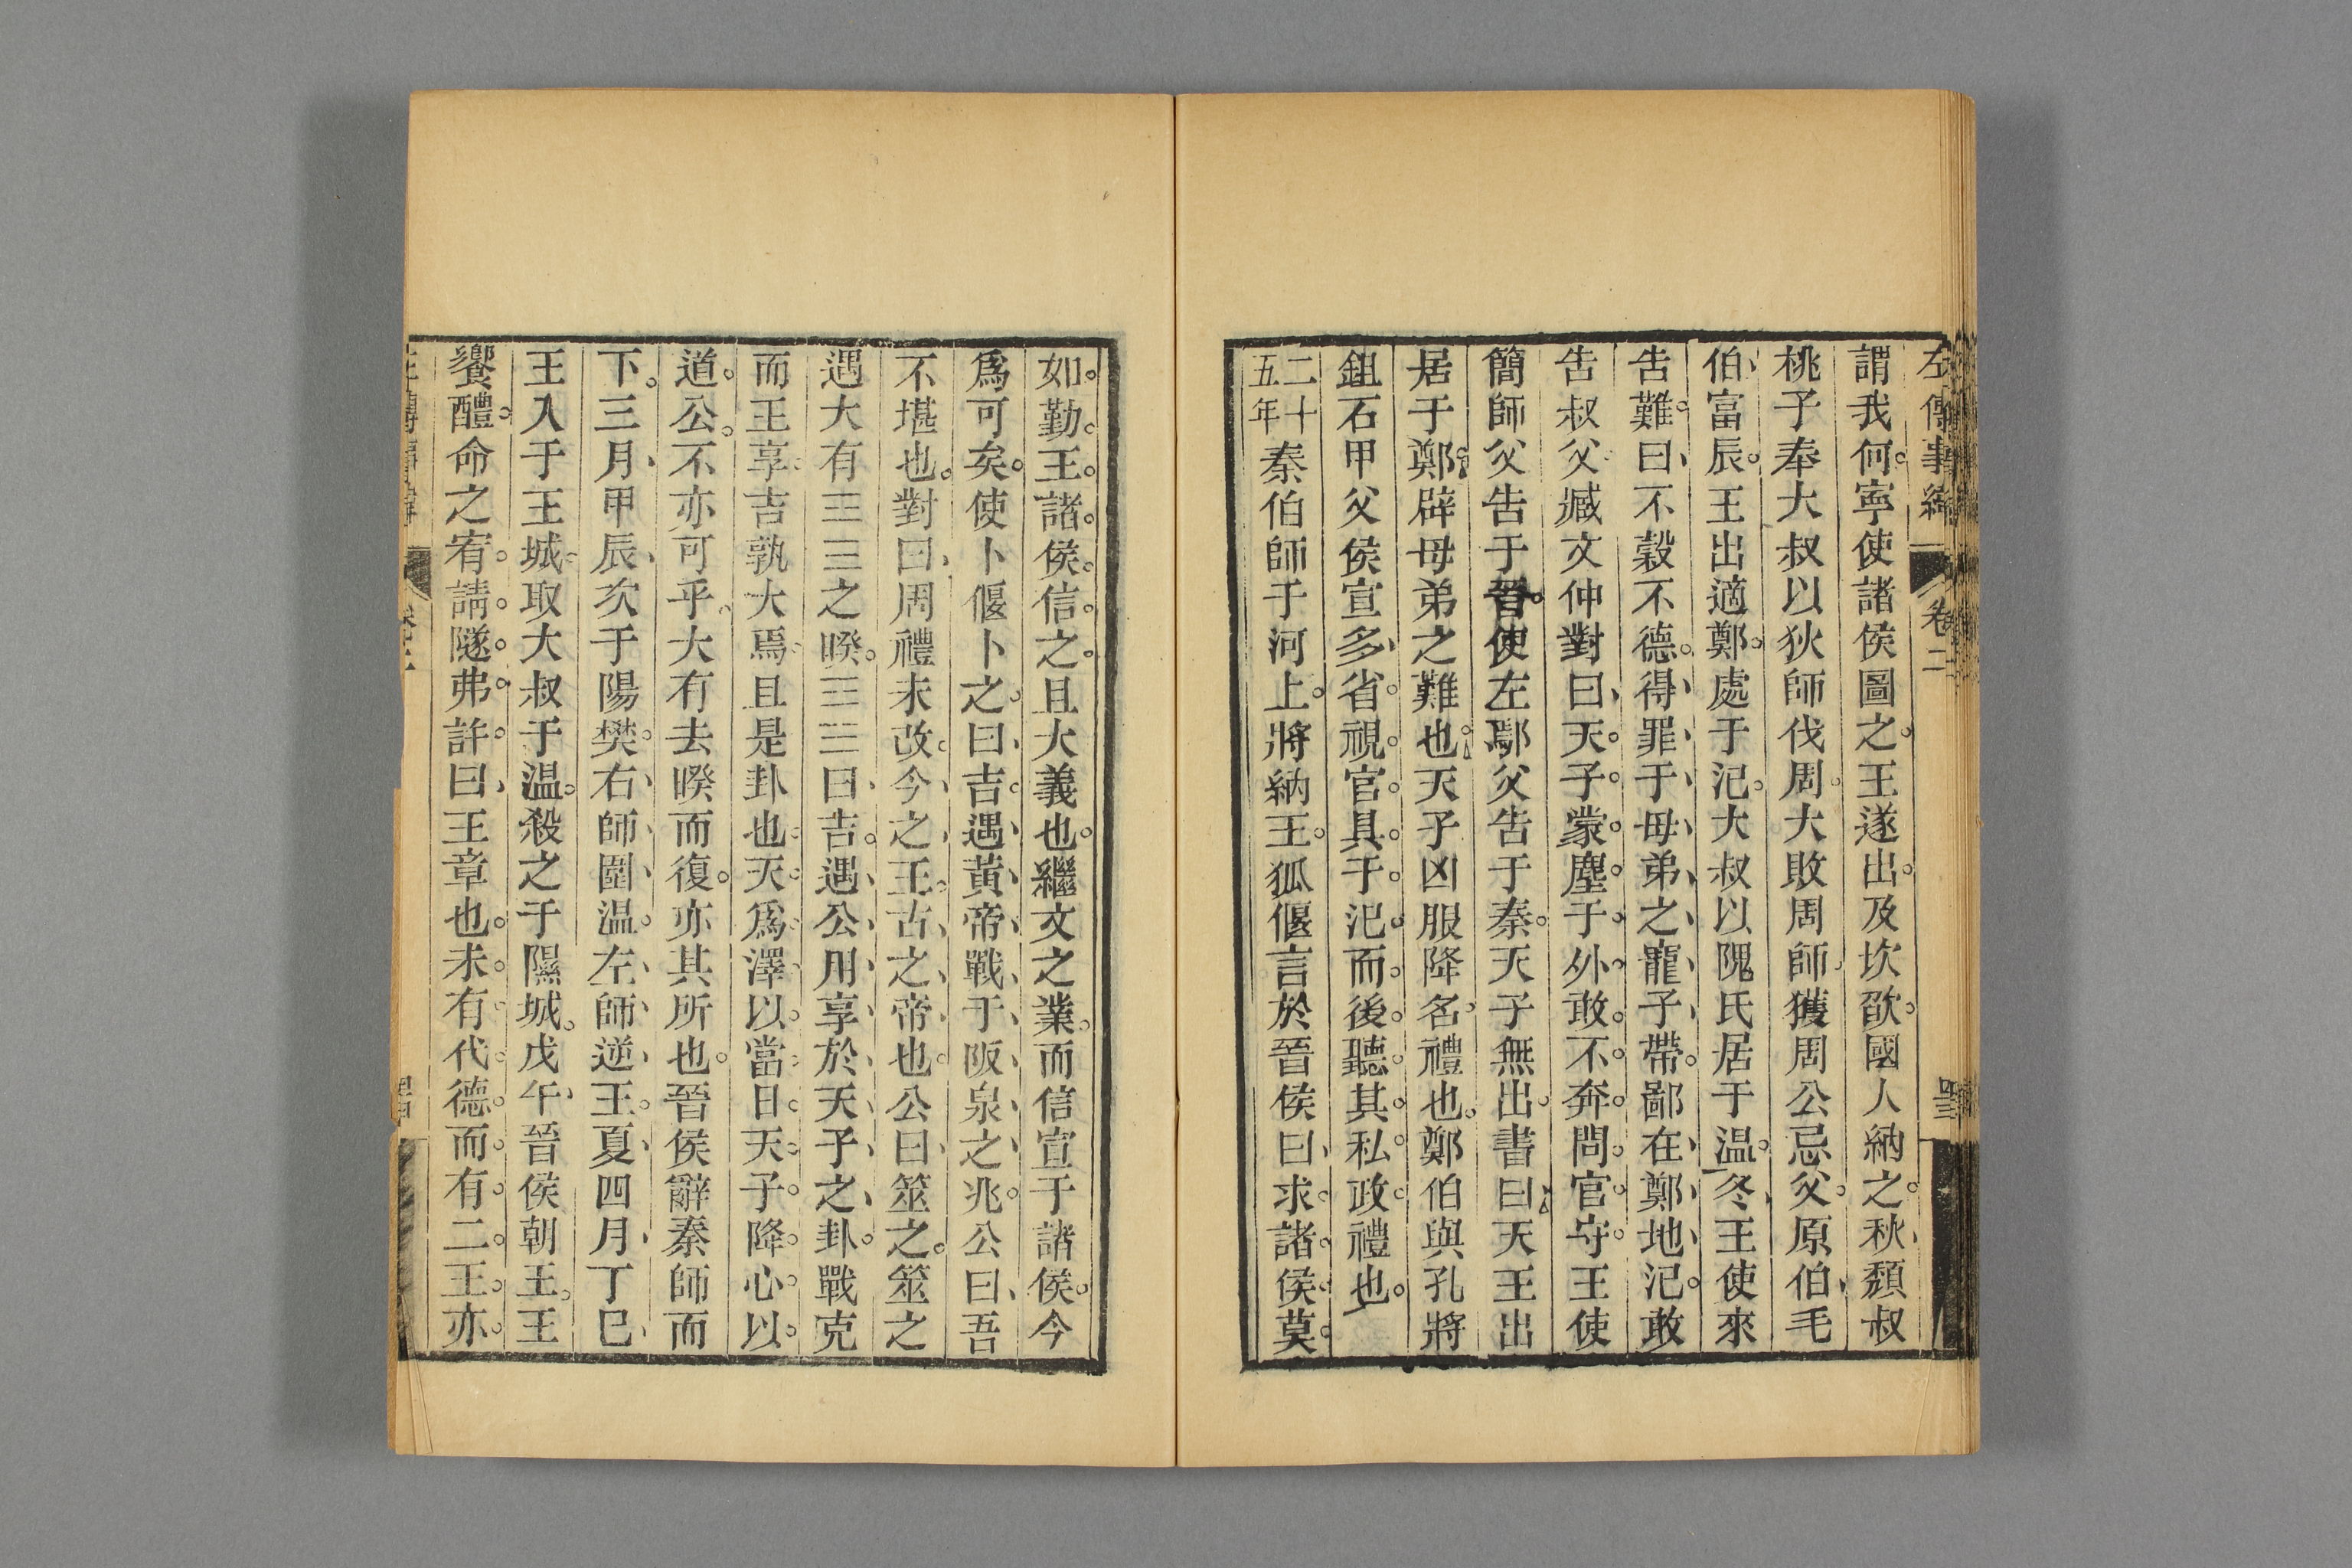 左傳事緯 卷二 四三
謂我何寧使諸侯圖之王遂出及坎欿國人納之秋頹叔
桃子奉大叔以狄師伐周大敗周師獲周公忌父原伯毛
伯富辰王出適鄭處于氾大叔以隗氏居于温冬王使來
告難曰不穀不德得罪于母弟之寵子帶鄙在鄭地氾敢
告叔父臧文仲對曰天子蒙塵于外敢不奔問官守王使
簡師父告于晉使左鄢父告于秦天子無出書曰天王出
居于鄭辟母弟之難也天子凶服降名禮也鄭伯與孔將
鉏石甲父侯宣多省視官具于氾而後聽其私政禮也
二十五年秦伯師于河上將納王狐偃言於晉侯曰求諸侯莫
如勤王諸侯信之且大義也繼文之業而信宣于諸侯今
爲可矣使卜偃卜之曰吉遇黃帝戰于阪泉之兆公曰吾
不堪也對曰周禮未改今之王古之帝也公曰筮之筮之
遇大有☰☲之睽☱☲曰吉遇公用享於天子之卦戰克
而王享吉孰大焉且是卦也天爲澤以當日天子降心以
道公不亦可乎大有去睽而復亦其所也晉侯辭秦師而
下三月甲辰次于陽樊右師圍温左師逆王夏四月丁巳
王入于王城取大叔于温殺之于隰城戊午晉侯朝王王
饗醴命之宥請隧弗許曰王章也未有代德而有二王亦